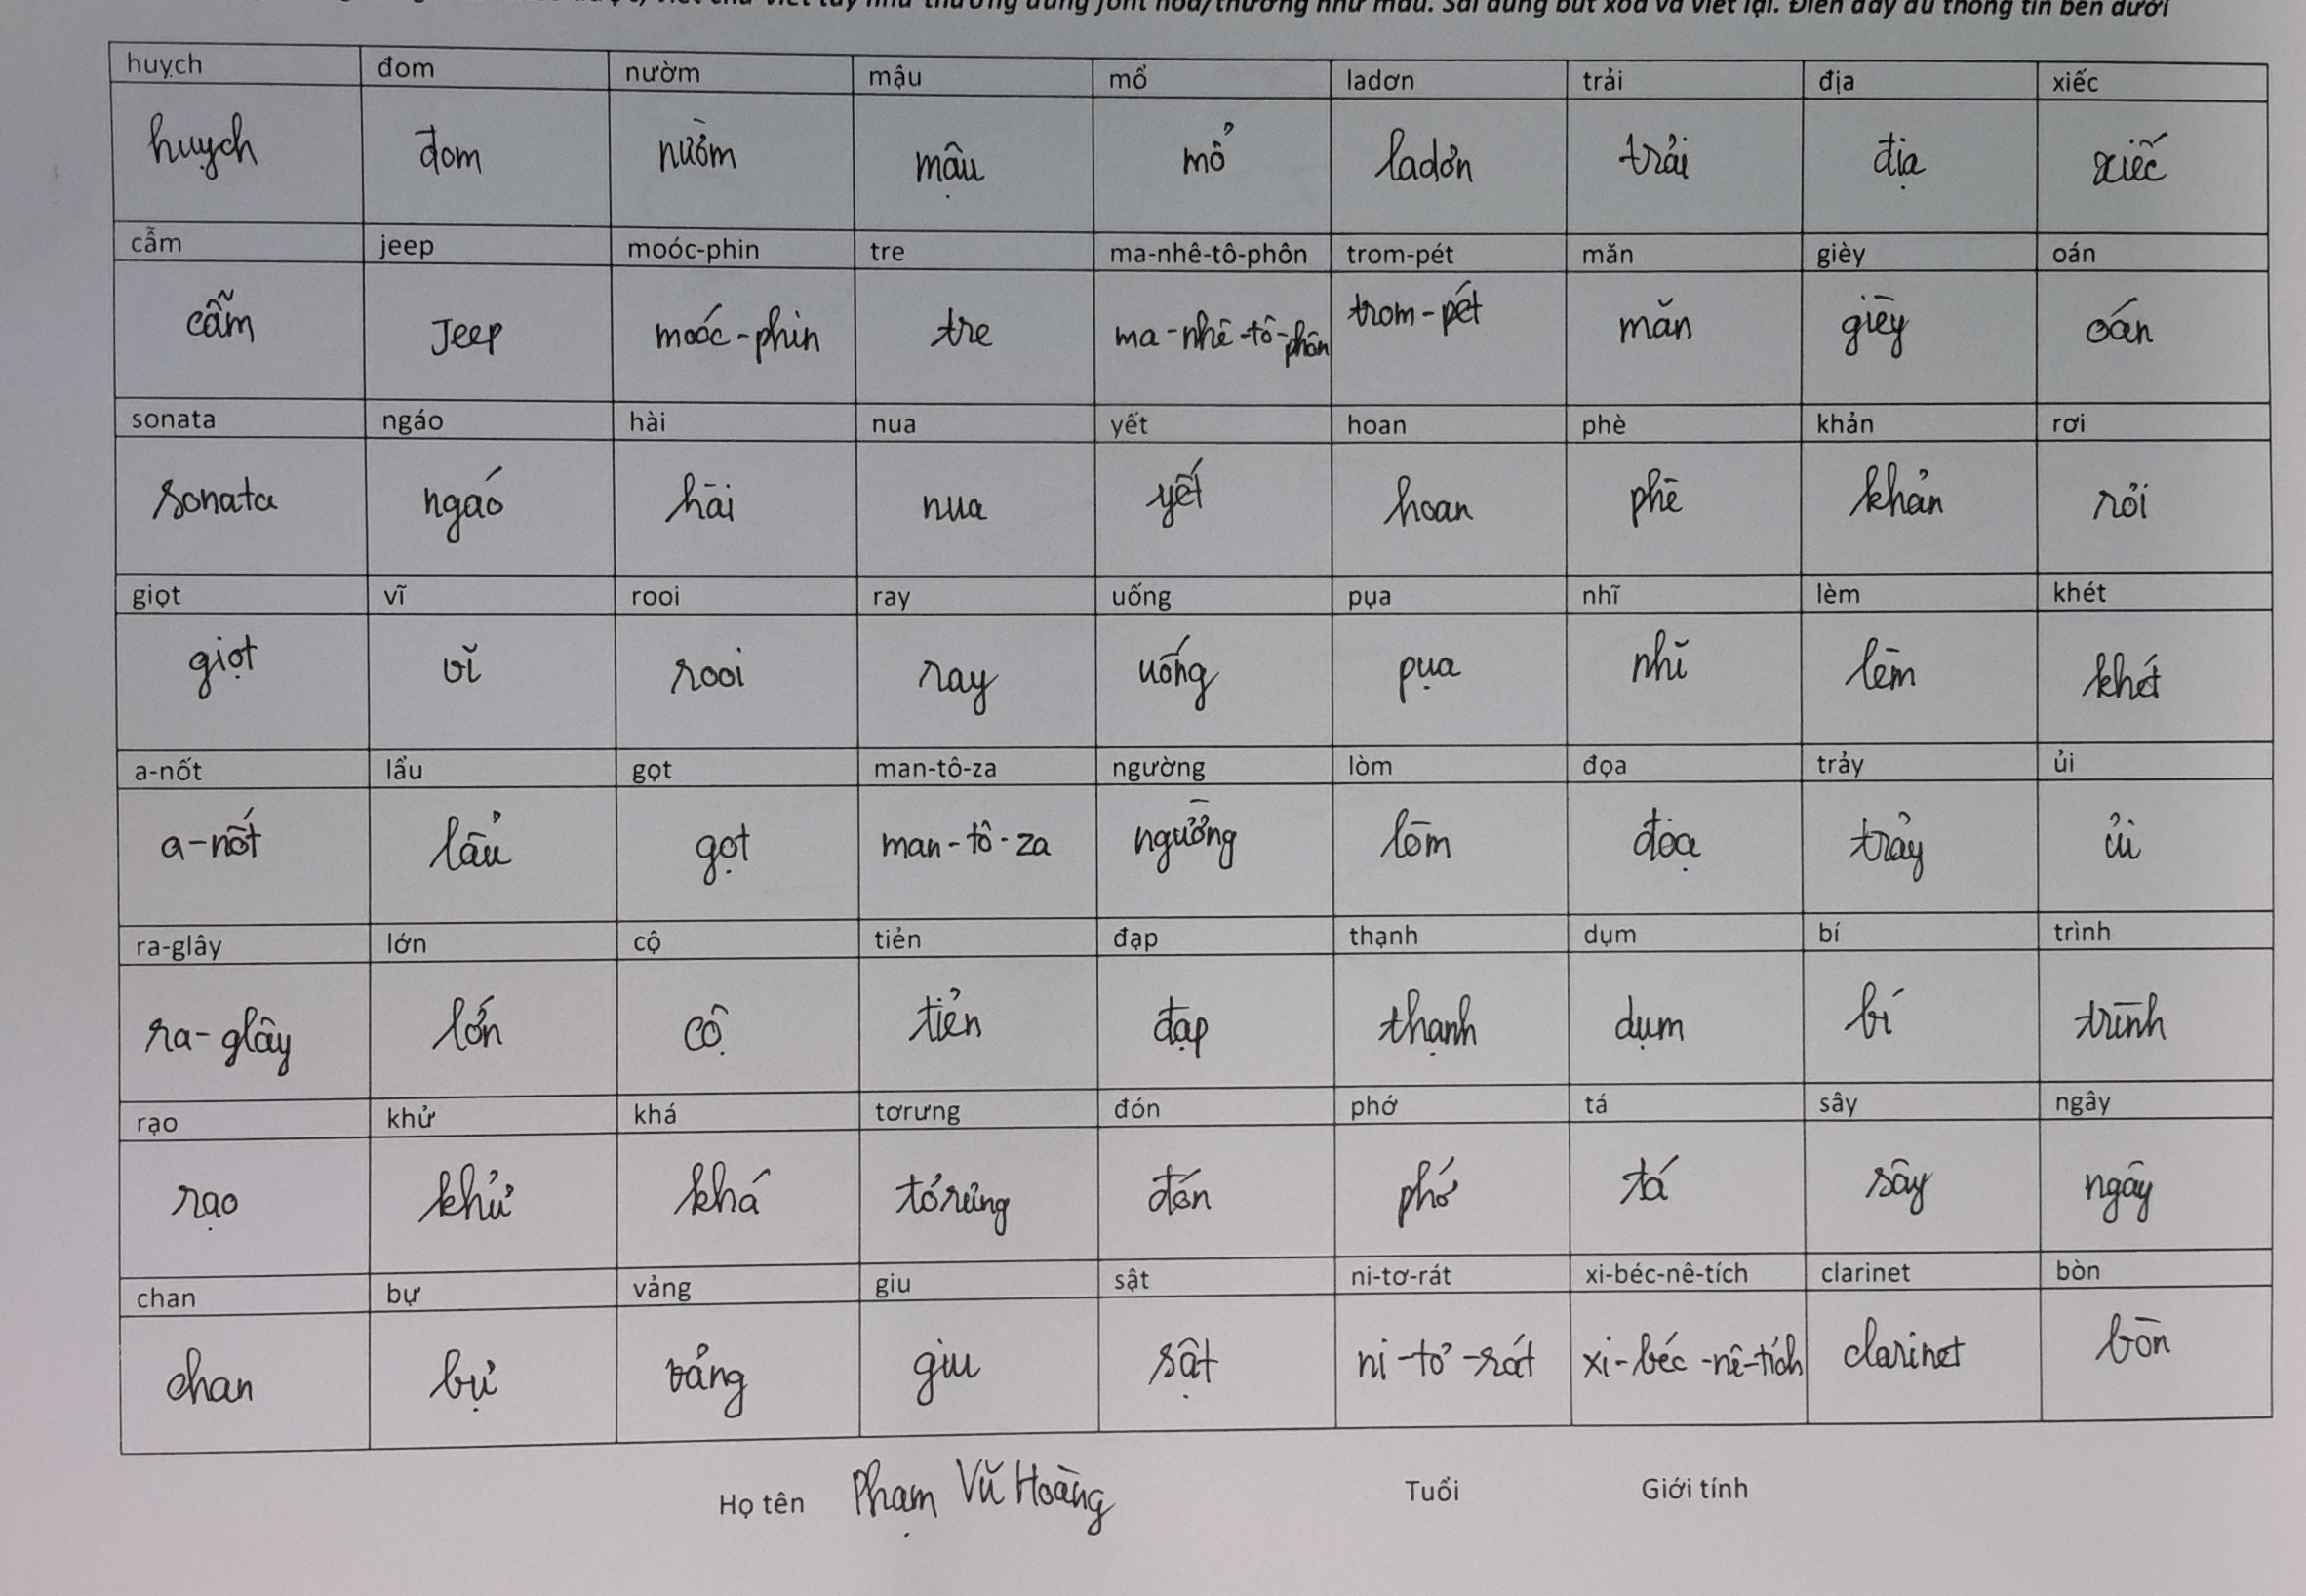 viết chữ viết tay như thường dùng font hoa/thường như mẫu. Sai dùng bút xoá và viết lại. Điền đầy đủ thông tin bên dưới
huỵch đom nườm mậu mổ ladơn trải địa xiếc
huỵch đom nườm mậu mổ ladơn trải địa xiếc
cẫm jeep moóc-phin tre ma-nhê-tô-phôn trom-pét măn gièy oán
cẫm Jeep moóc-phin tre ma-nhê-tô-phôn trom-pét măn gièy oán
sonata ngáo hài nua yết hoan phè khản rơi
sonata ngáo hài nua yết hoan phè khản rơi
giọt vĩ rooi ray uống pụa nhĩ lèm khét
giọt vĩ rooi ray uống pụa nhĩ lèm khét
a-nốt lẩu gọt man-tô-za ngường lòm đọa trảy ủi
a-nốt lẩu gọt man-tô-za ngường lòm đọa trảy ủi
ra-glây lớn cộ tiẻn đạp thạnh dụm bí trình
ra-glây lớn cộ tiẻn đạp thạnh dụm bí trình
rạo khử khá tơrưng đón phớ tá sây ngây
rạo khử khá tơrưng đón phớ tá sây ngây
chan bự vảng giu sật ni-tơ-rát xi-béc-nê-tích clarinet bòn
chan bự vảng giu sật ni-tơ-rát xi-béc-nê-tích clarinet bòn
Họ tên Phạm Vũ Hoàng Tuổi Giới tính